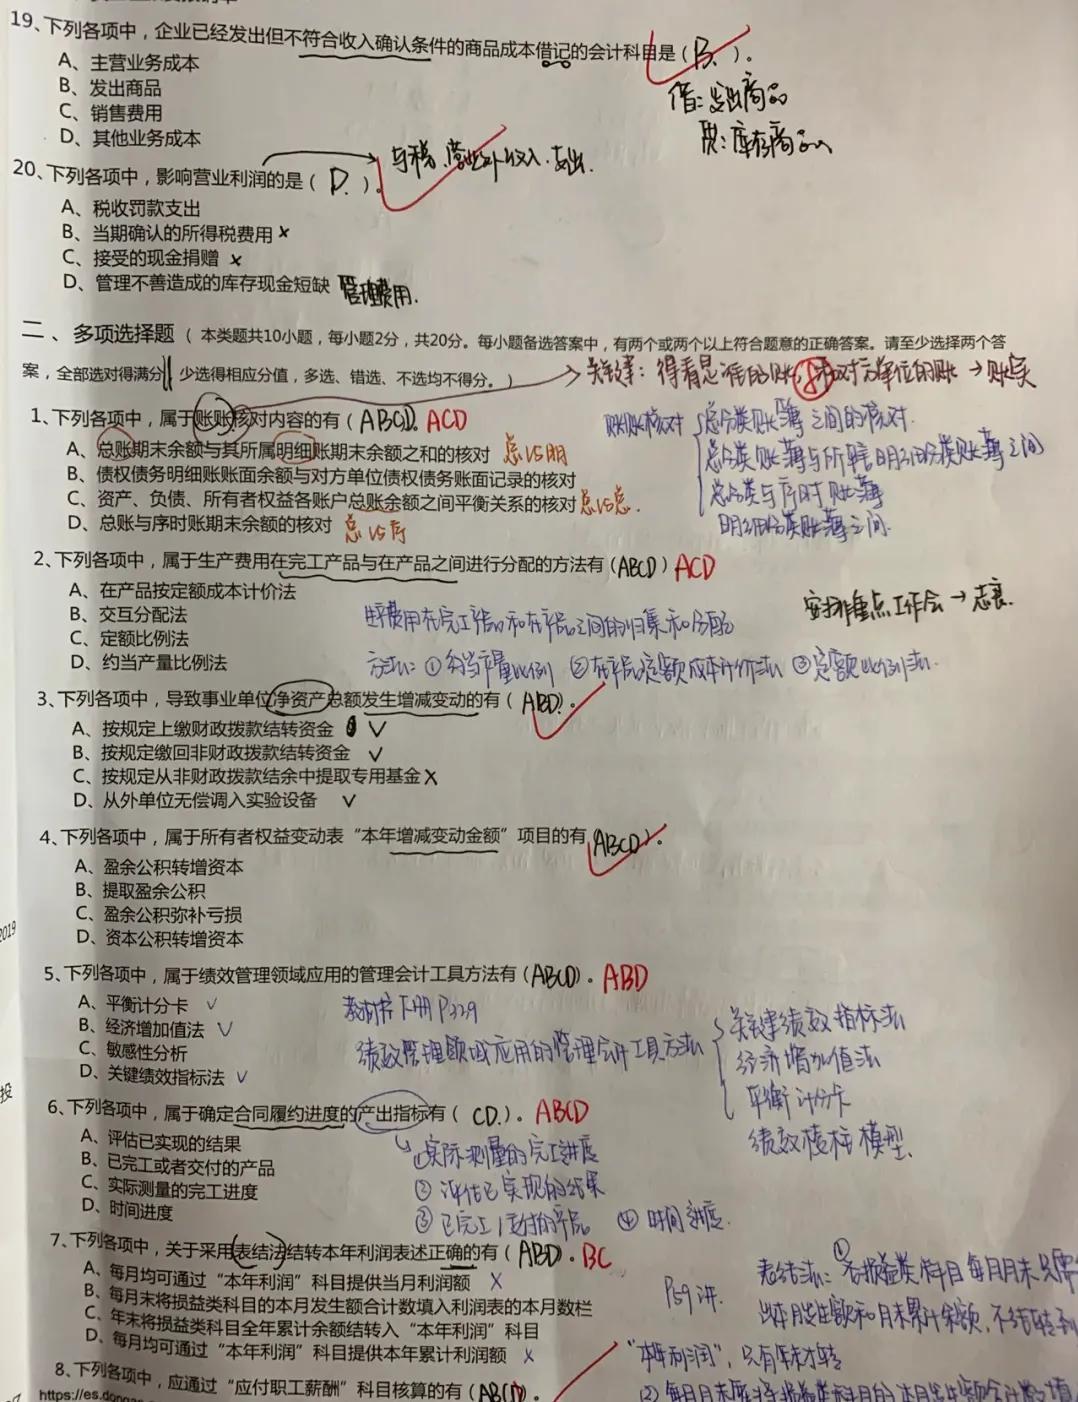 19、下列各项中，企业已经发出但不符合收入确认条件的商品成本借记的会计科目是（ B. ）。
A、主营业务成本
B、发出商品
C、销售费用
D、其他业务成本
借：发出商品
贷：库存商品
20、下列各项中，影响营业利润的是（ D. ）。
与税、营业外收入、支出.
A、税收罚款支出
B、当期确认的所得税费用 ×
C、接受的现金捐赠 ×
D、管理不善造成的库存现金短缺 管理费用.
二、多项选择题（ 本类题共10小题，每小题2分，共20分。每小题备选答案中，有两个或两个以上符合题意的正确答案。请至少选择两个答
案，全部选对得满分 少选得相应分值，多选、错选、不选均不得分。）
关键: 得看是谁的账, 对方单位的账 → 账实
1、下列各项中，属于账账核对内容的有（ABCD）。 ACD
A、总账期末余额与其所属明细账期末余额之和的核对 总VS明
B、债权债务明细账账面余额与对方单位债权债务账面记录的核对
C、资产、负债、所有者权益各账户总账余额之间平衡关系的核对 总VS总.
D、总账与序时账期末余额的核对 总VS序
账账核对
总分类账簿之间的核对.
总分类账簿与所辖明细分类账簿之间
总分类与序时账簿
明细分类账簿之间.
2、下列各项中，属于生产费用在完工产品与在产品之间进行分配的方法有（ABCD） ACD
A、在产品按定额成本计价法
B、交互分配法
C、定额比例法
D、约当产量比例法
生产费用在完工产品和在产品之间的归集和分配
方法: ①约当产量比例 ②在产品定额成本计价法 ③定额比例法.
安排重点工作会 →
3、下列各项中，导致事业单位净资产总额发生增减变动的有（ ABD. ）。
A、按规定上缴财政拨款结转资金 √
B、按规定缴回非财政拨款结转资金 √
C、按规定从非财政拨款结余中提取专用基金 ×
D、从外单位无偿调入实验设备 √
4、下列各项中，属于所有者权益变动表“本年增减变动金额”项目的有（ABCD）。
A、盈余公积转增资本
B、提取盈余公积
C、盈余公积弥补亏损
D、资本公积转增资本
2019
5、下列各项中，属于绩效管理领域应用的管理会计工具方法有（ABCD）。 ABD
A、平衡计分卡 √
B、经济增加值法 √
C、敏感性分析
D、关键绩效指标法 √
教材下册P229
绩效管理领域应用的管理会计工具方法
关键绩效指标法
经济增加值法
平衡计分卡
绩效棱柱模型.
投
6、下列各项中，属于确定合同履约进度的产出指标有（ CD. ）。 ABCD
A、评估已实现的结果
B、已完工或者交付的产品
C、实际测量的完工进度
D、时间进度
①实际测量的完工进度
②评估已实现的结果
③已完工/交付的产品 ④时间进度.
7、下列各项中，关于采用表结法结转本年利润表述正确的有（ ABD. BC
A、每月均可通过“本年利润”科目提供当月利润额 ×
B、每月末将损益类科目的本月发生额合计数填入利润表的本月数栏
C、年末将损益类科目全年累计余额结转入“本年利润”科目
D、每月均可通过“本年利润”科目提供本年累计利润额 ×
P59讲.
表结法: ①各损益类科目每月月末只需
出本月发生额和月末累计余额, 不结转到
“本年利润”, 只有年末才转
8、下列各项中，应通过“应付职工薪酬”科目核算的有（ABCD.
(2) 每月月末要将损益类科目的本月发生额合计数填